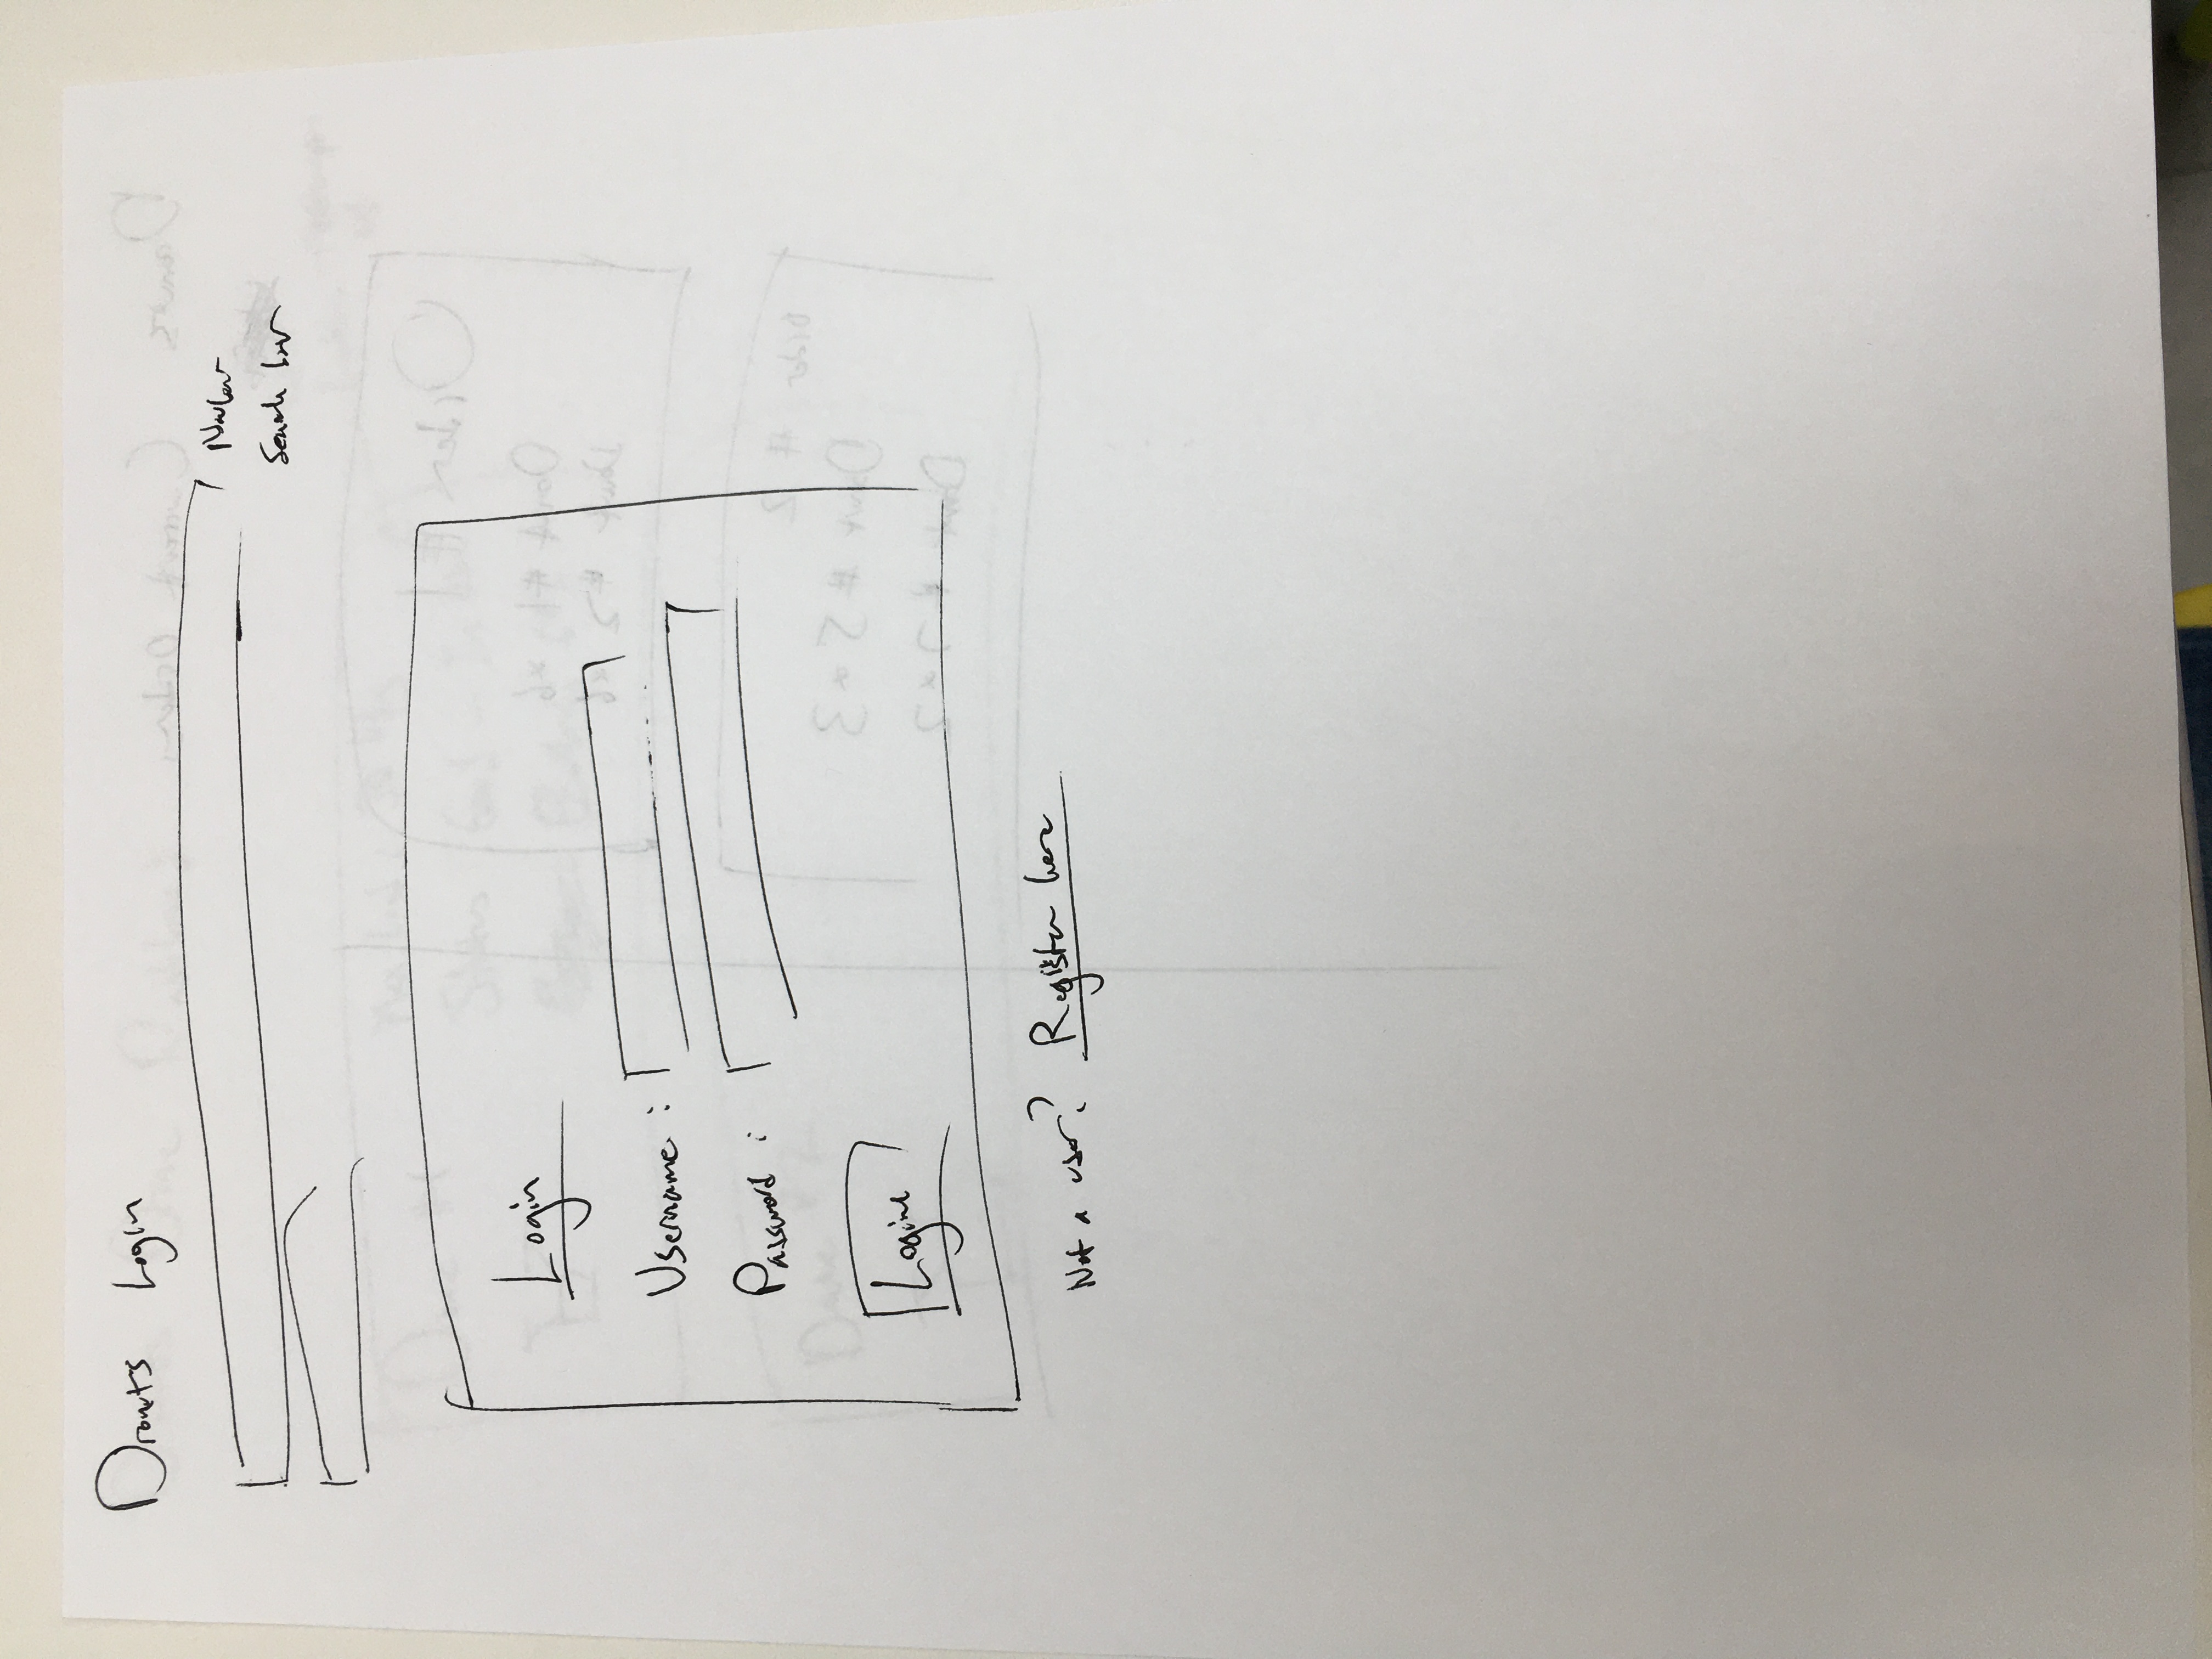 Dronuts Login
Navbar
Search bar
Login
Username :
Password :
Login
Not a user? Register here